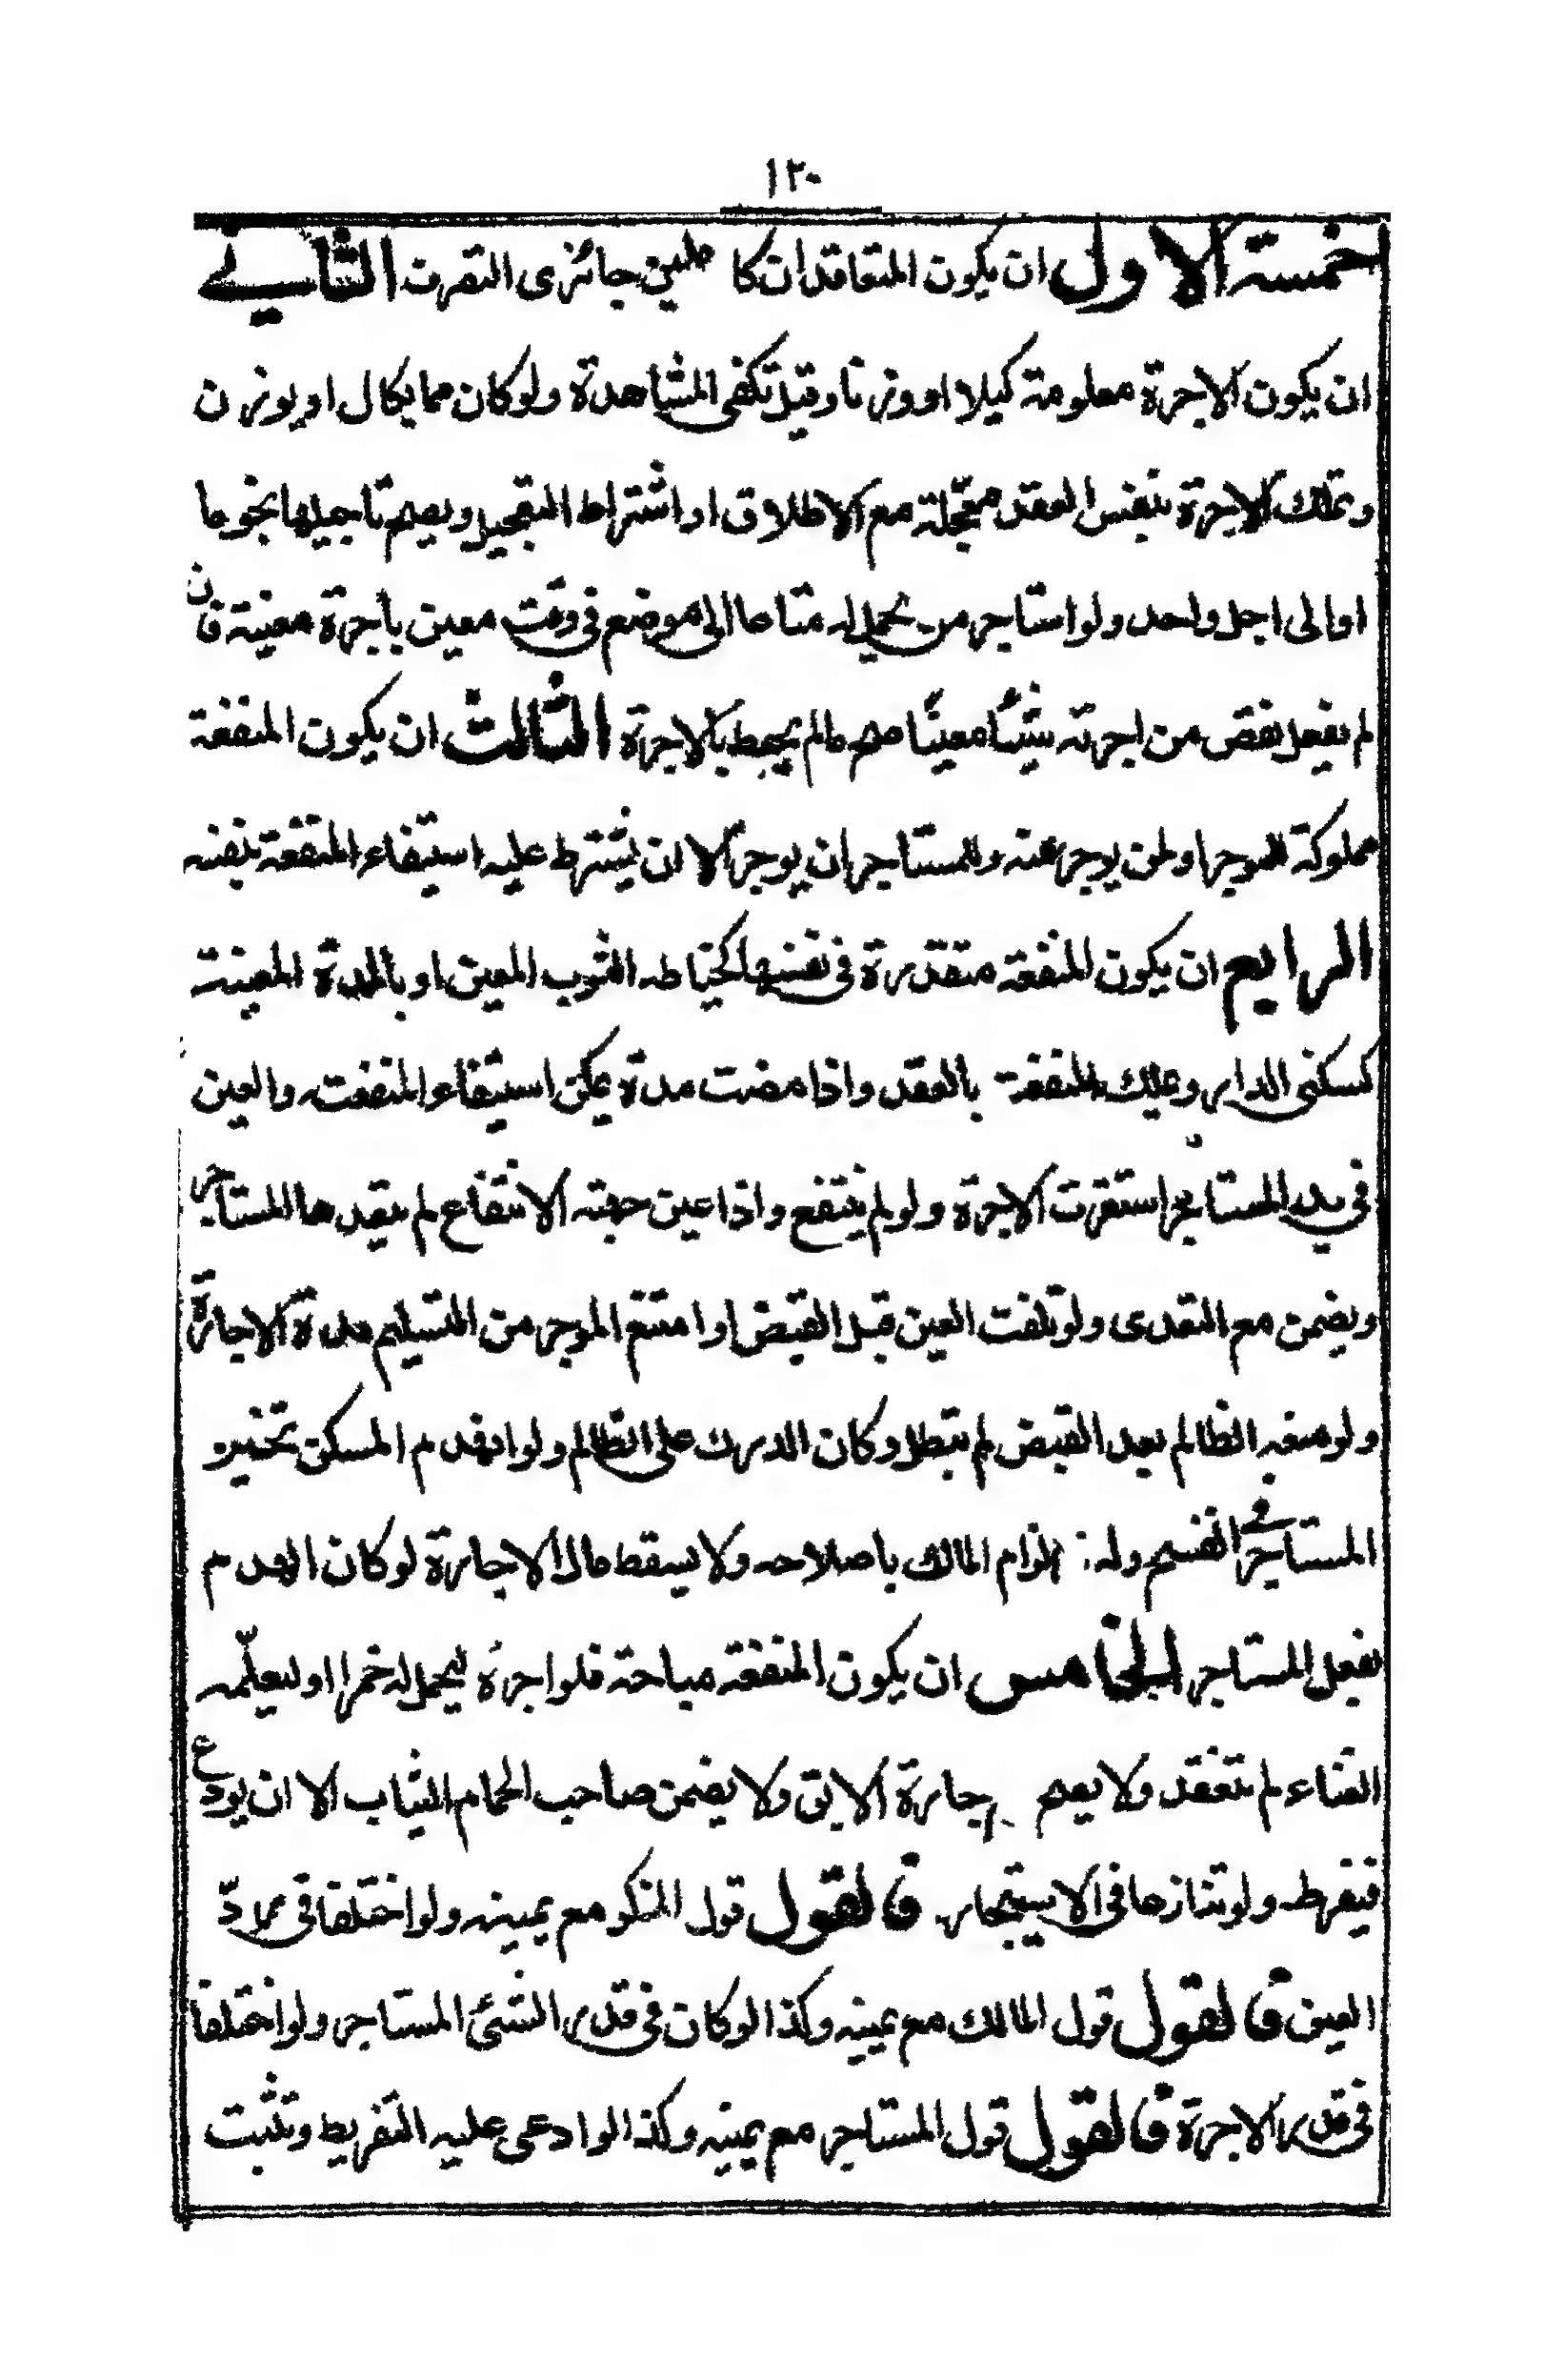 ١٢٠
خمسة الاول ان يكون المتعاقدان كاملين جائزى التصرف الثاني
ان يكون الاجرة معلومة كيلا او وزنا وقيل تكفى المشاهدة ولو كان مما يكال او يوزن
وتملك الاجرة بنفس العقد معجّلة مع الاطلاق او اشتراط التعجيل ويصح تاجيلها نجوما
او الى اجل واحد ولو استاجر من يحمل له متاعا الى موضع فى وقت معين باجرة معينة فان
لم يفعل نقص من اجرته شيئًا معينًا صح مالم يحيط بالاجرة الثالث ان يكون المنفعة
مملوكة للموجر او لمن يوجر عنه وللمستاجر ان يوجر الا ان يشترط عليه استيفاء المنفعة بنفسه
الرابع ان يكون المنفعة متقدّرة فى نفسها كخياطه الثوب المعين او بالمدة المعينة
كسكنى الدار وتملك المنفعة بالعقد واذا مضت مدة يمكن استيفاء المنفعة والعين
فى يد المستاجر استقرت الاجرة ولو لم ينتفع واذا عين جهته الانتفاع لم يتعدها المستاجر
ويضمن مع التعدى ولو تلفت العين قبل القبض او امتنع الموجر من التسليم مدة الاجارة
ولو منعه الظالم بعد القبض لم تبطل وكان الدرك على الظالم ولو انهدم المسكن تخير
المستاجر فى الفسخ وله الزام المالك باصلاحه ولا يسقط مال الاجارة لو كان الهدم
بفعل المستاجر الخامس ان يكون المنفعة مباحة فلو اجره ليحمل له خمرا او ليعلّمه
الغناء لم تنعقد ولا يصح اجارة الابق ولا يضمن صاحب الحمام الثياب الا ان يودع
فيفرط ولو تنازعا فى الاستيجار فالقول قول المنكر مع يمينه ولو اختلفا فى ردّ
العين فالقول قول المالك مع يمينه وكذا لو كان فى قدر الشئ المستاجر ولو اختلفا
فى قدر الاجرة فالقول قول المستاجر مع يمينه وكذا لو ادعى عليه التفريط وتثبت